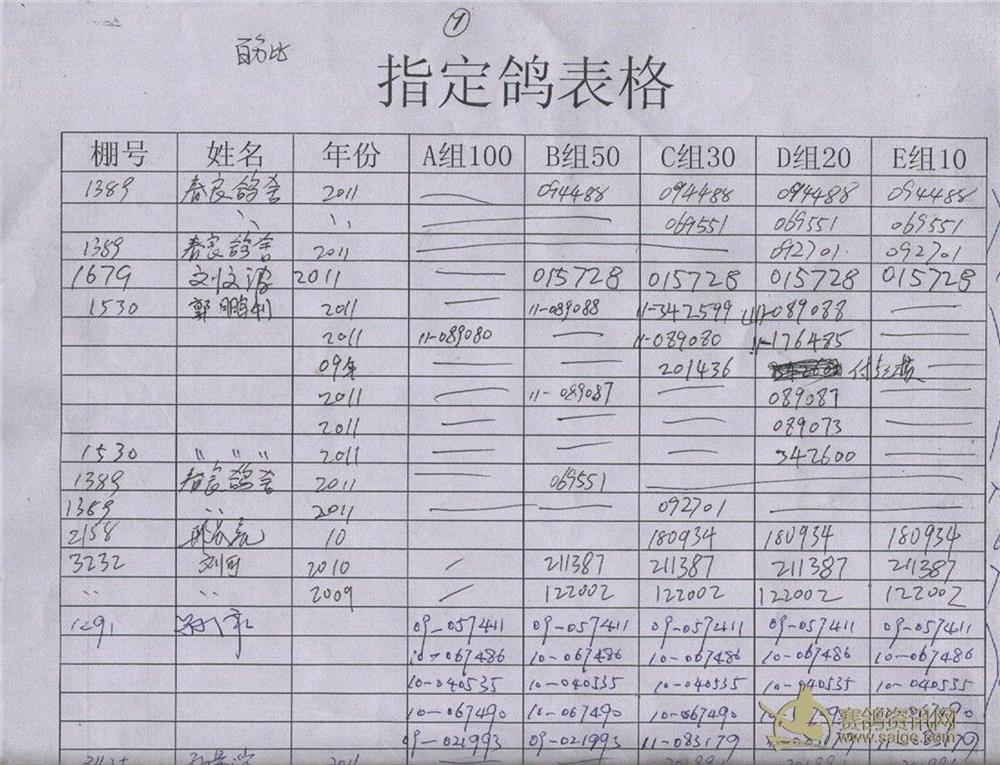 ①
百分比
指定鸽表格
棚号 姓名 年份 A组100 B组50 C组30 D组20 E组10
1389 春良鸽舍 2011 — 094488 094488 094488 094488
〃 〃 — — 069551 069551 069551
1389 春良鸽舍 2011 — — — 092701 092701
1679 刘文波 2011 — 015728 015728 015728 015728
1530 郭鹏利 2011 — 11-089088 11-342599 11-089088 —
2011 11-089080 — 11-089080 11-176485 —
09年 — — 201436 —
2011 — 11-089087 — 089087 —
2011 — — — 089073 —
1530 〃 〃 〃 2011 — — — 342600 —
1389 春良鸽舍 2011 — 069551 —
1389 〃 2011 — — 092701 — —
2158 10 180934 180934 180934
3232 刘可 2010 / 211387 211387 211387 211387
〃 〃 2009 / 122002 122002 122002 122002
1291 09-057411 09-057411 09-057411 09-057411 09-057411
10-067486 10-067486 10-067486 10-067486 10-067486
10-040535 10-040535 10-040535 10-040535 10-040535
10-067490 10-067490 10-067490
09-021993 09-021993 11-083179
赛鸽资讯网
www.saige.com